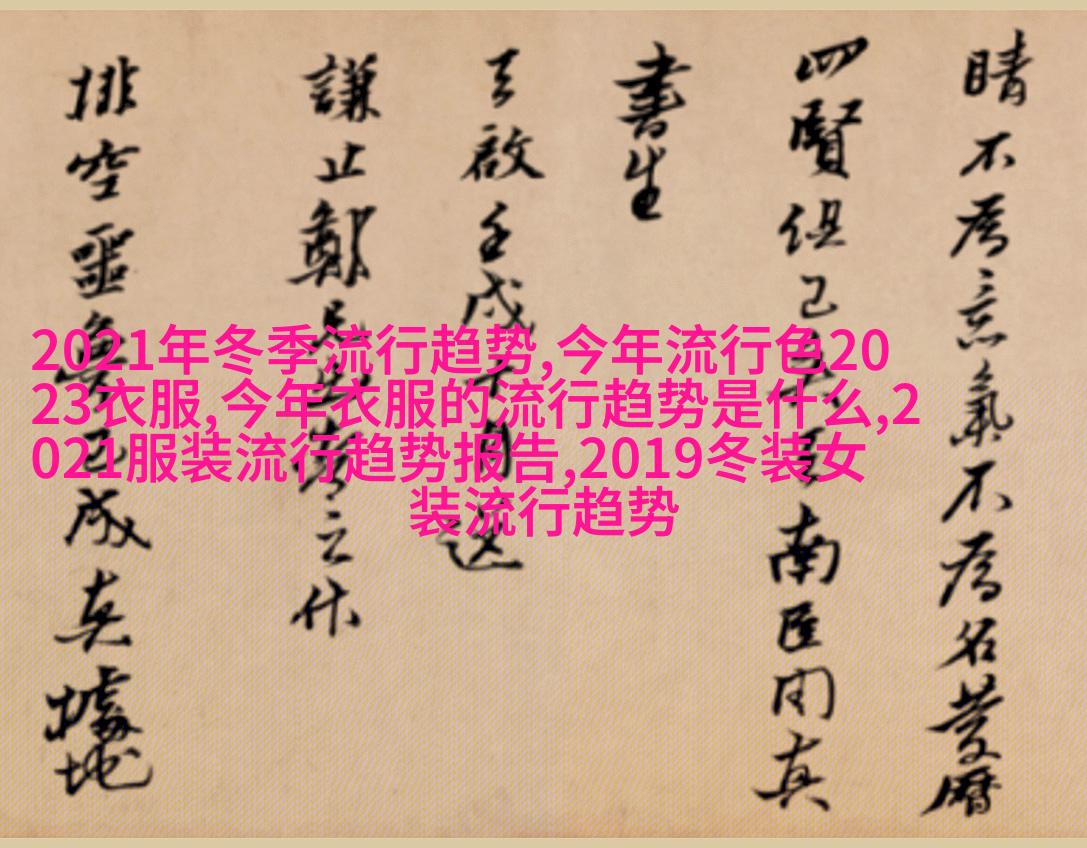 2021年冬季流行趋势,今年流行色20
23衣服,今年衣服的流行趋势是什么,2
021服装流行趋势报告,2019冬装女
装流行趋势
晴不為意氣不為名
四賢俱已南匡闲真
書生
天啟壬戌月
謙止鄭云什
排空噩已成真據地